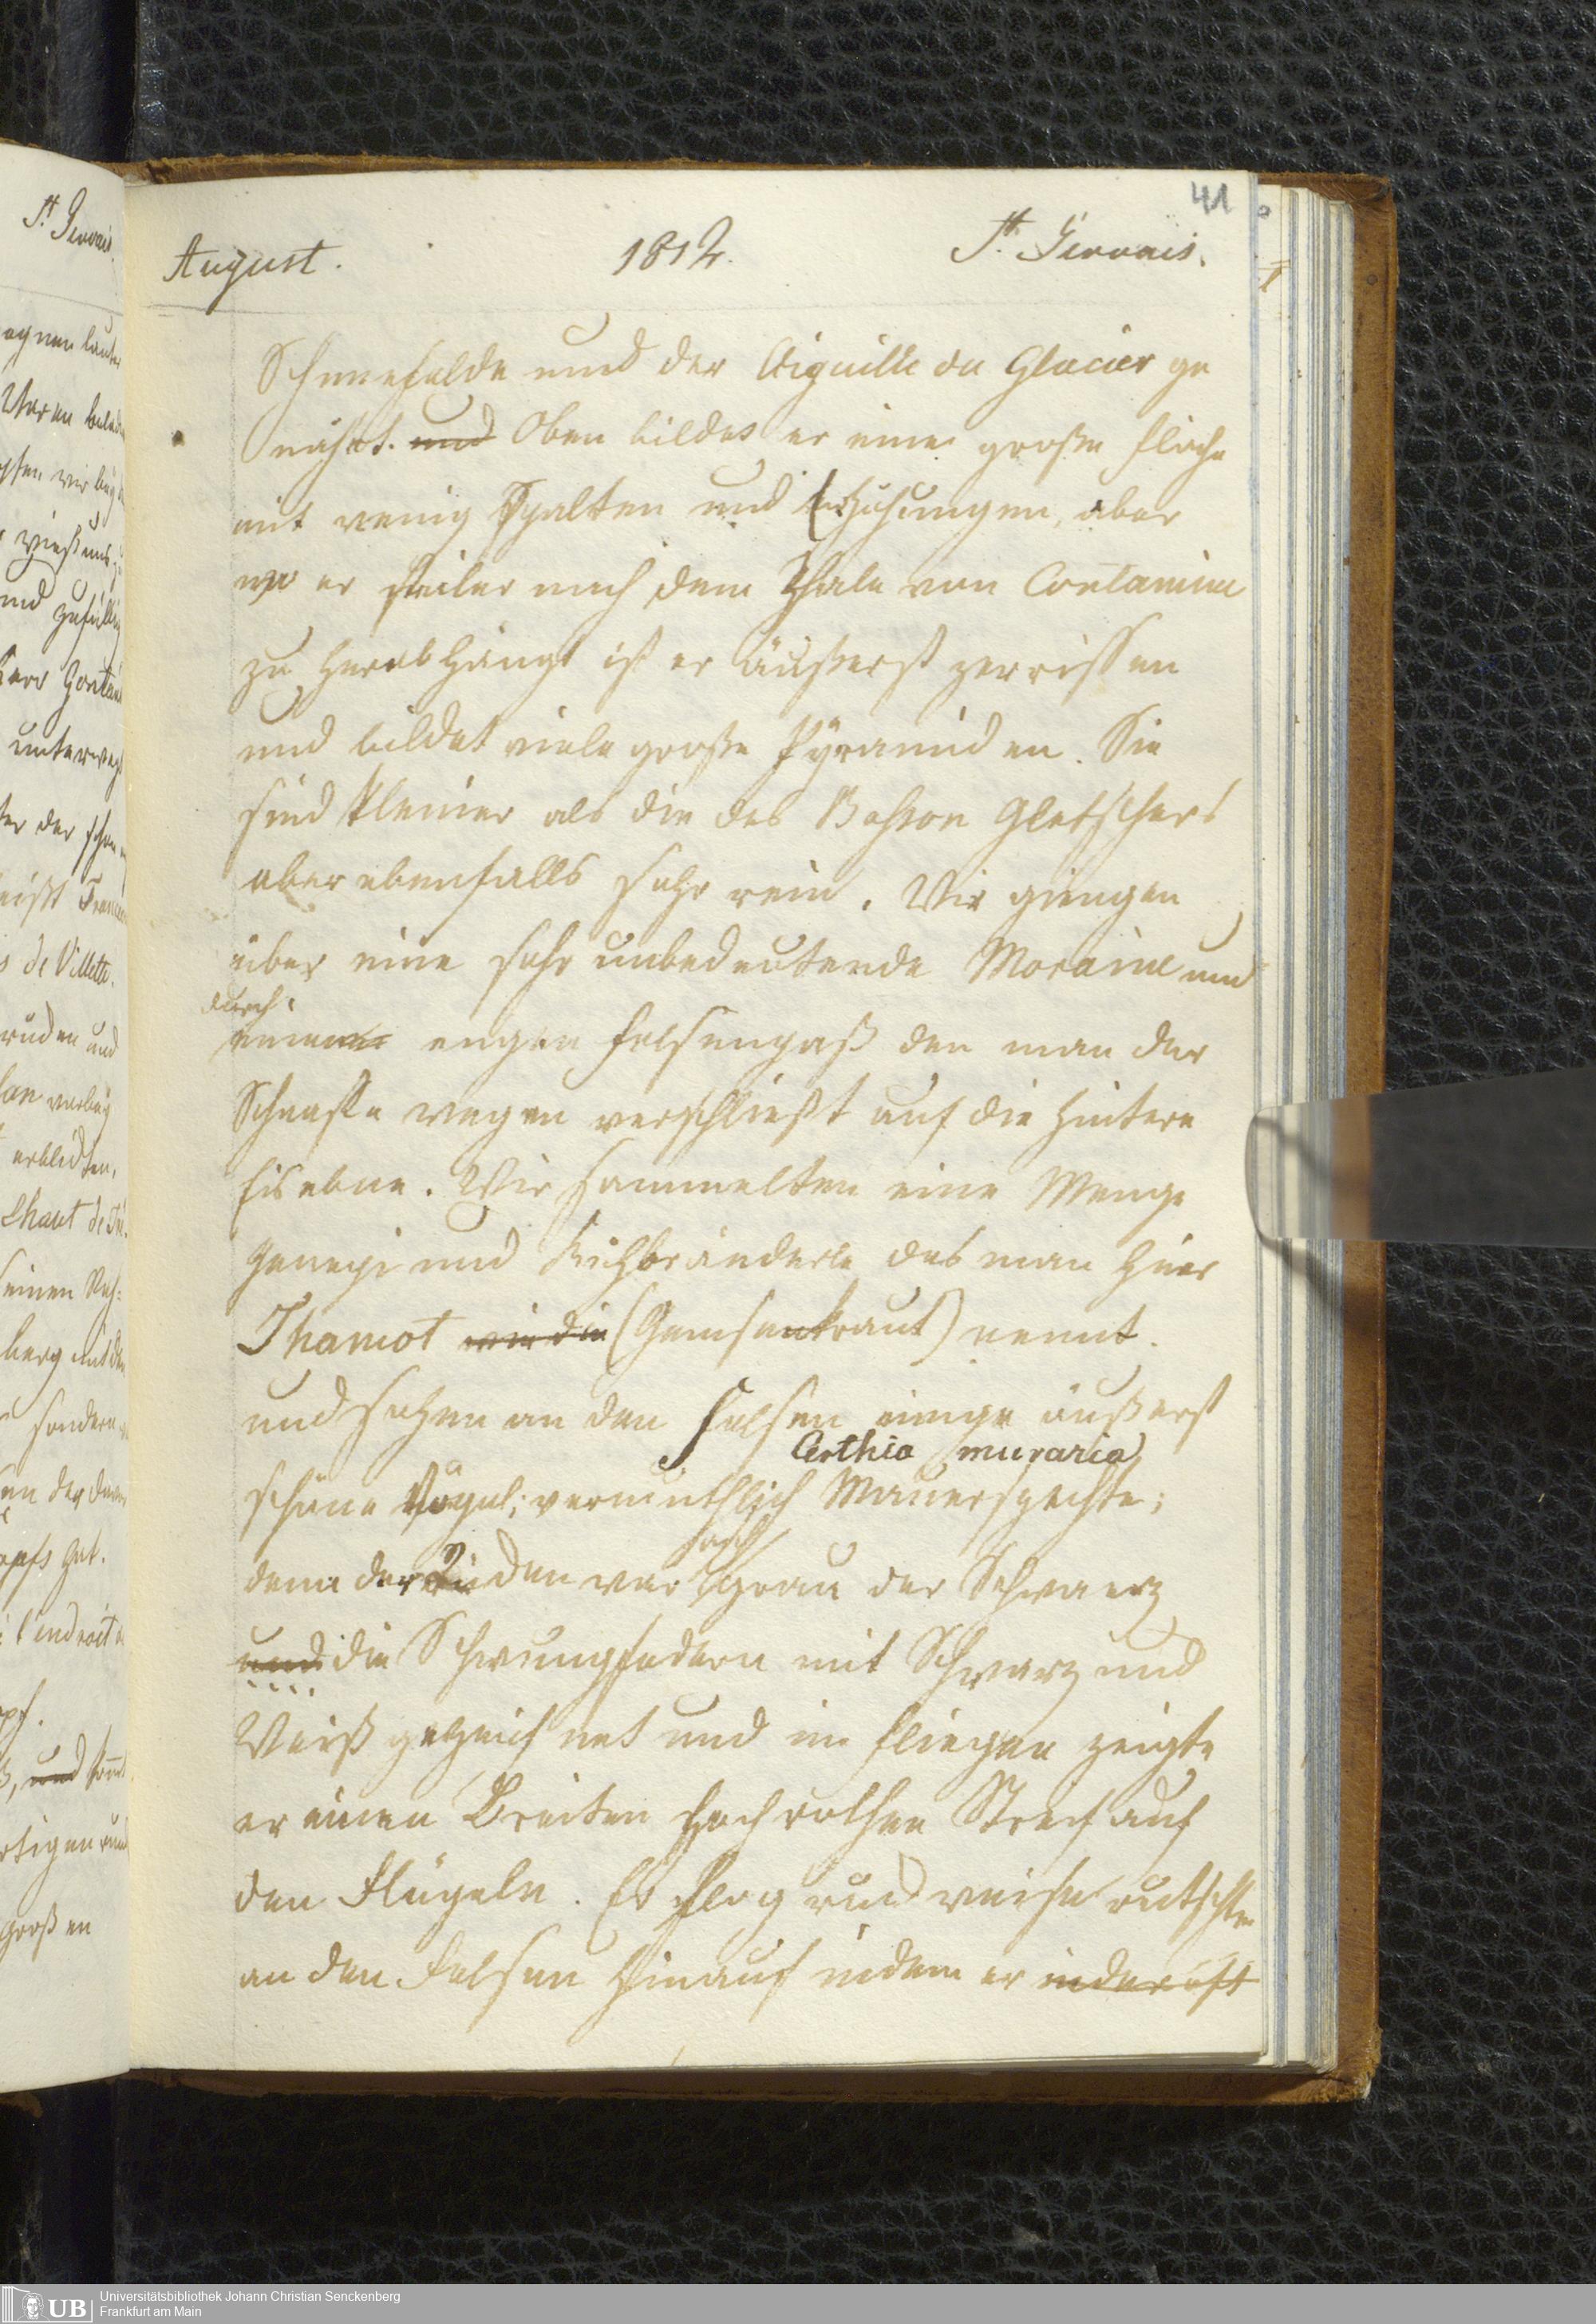 41
August. 1812. St. Gervais.
Schneefelde und der Aiguille du Glacier ge
nährt. und Oben bildet er eine große Fläche
mit wenig Spalten und Erhöhungen, aber
wo er steiler nach dem Thale von Contamine
zu herabhängt ist er äußerst zerrissen
und bildet viele große Pyramiden. Sie
sind kleiner als die des Bosson Gletschers
aber ebenfalls sehr rein. Wir giengen
über eine sehr unbedeutende Moraine und
durch
einen engen Felsenpaß den man der
Schaafe wegen verschließt auf die hintere
Eisebne. Wir sammelten eine Menge
Genepi und das man hier
Thamot wie die (Gemsenkraut) nennt.
und sahen an den Felsen einige äußerst
Certhia muraria
schöne Vögel; vermuthlich Mauerspechte;
denn der war
asch
grau der Schwanz
und die Schwungfedern mit Schwarz und
Weiß gezeichnet und im Fliegen zeigte
er einen Breiten hochrothen Streif auf
den Flügeln. Er flog ruckweise rutschte
an den Felsen hinauf indem er
St. Gervais
de Villette.
Universitätsbibliothek Johann Christian Senckenberg
UB Frankfurt am Main